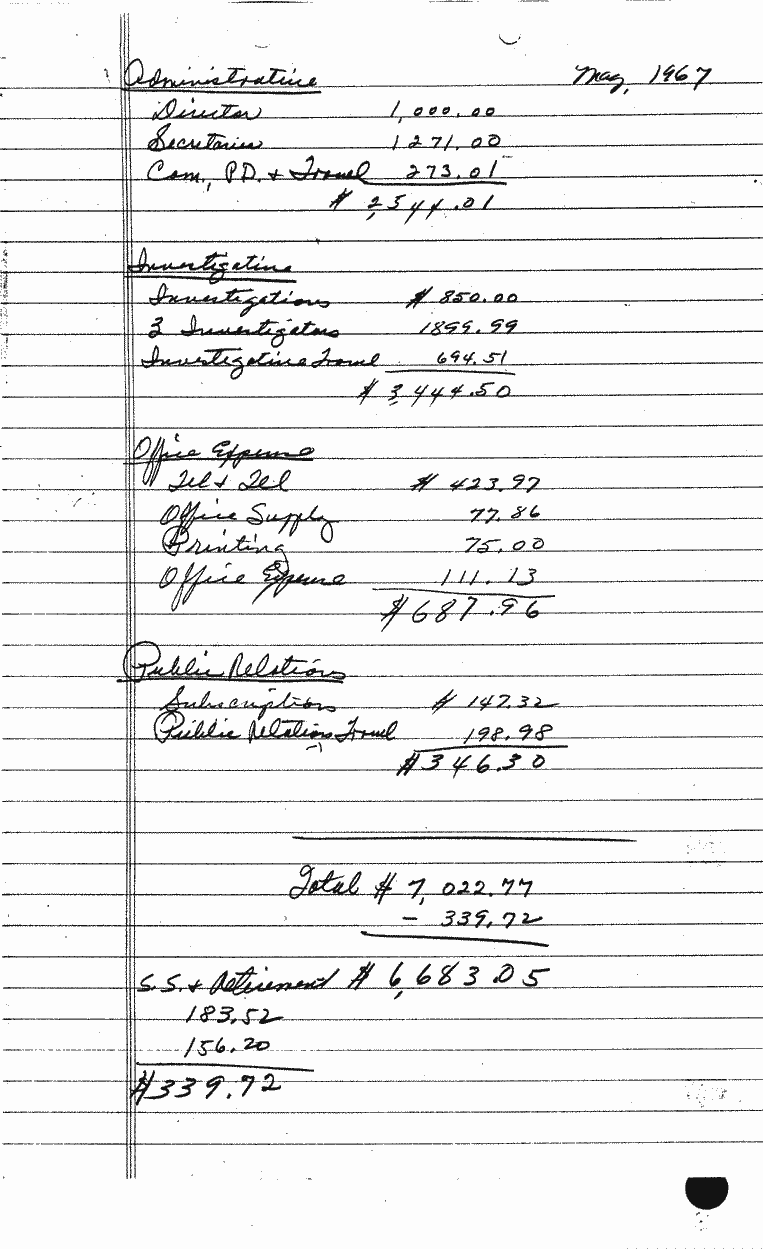 Administrative May, 1967
Director 1,000.00
Secretaries 1271.00
Com., P.D. + Travel 273.01
$ 2,544.01
Investigative
Investigations $ 850.00
3 Investigators 1899.99
Investigative Travel 694.51
$ 3,444.50
Office Expense
Tel + Tel $ 423.97
Office Supply 77.86
Printing 75.00
Office Expense 111.13
$687.96
Public Relations
Subscriptions $ 147.32
Public Relations Travel 198.98
$346.30
Total $ 7,022.77
- 339.72
S.S. + Retirement $ 6,683.05
183.52
156.20
$339.72